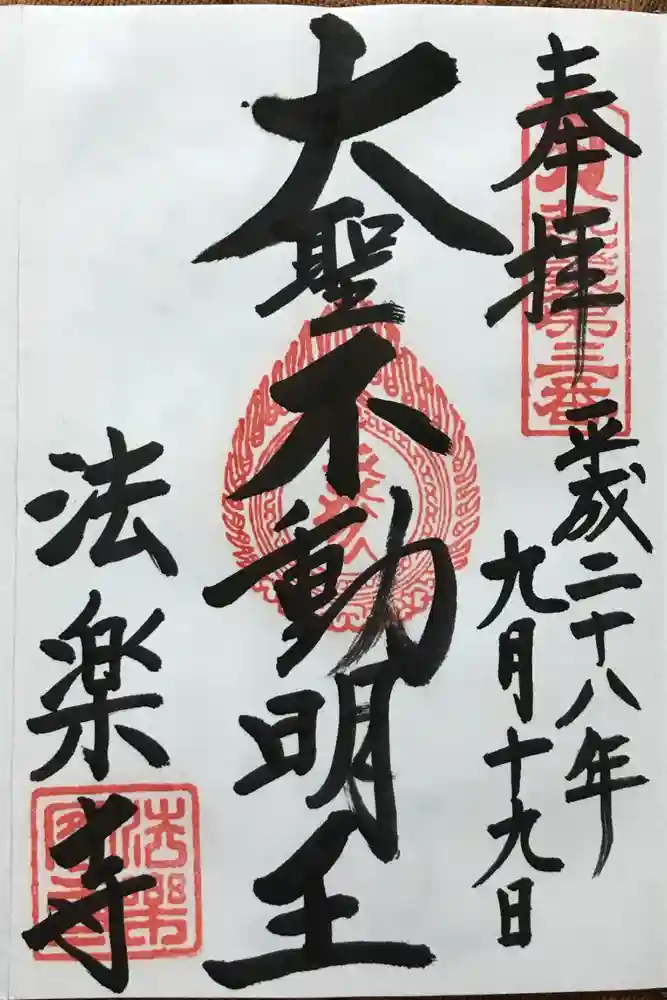 奉拝
平成二十八年
九月十九日
大聖不動明王
法楽寺
第三番